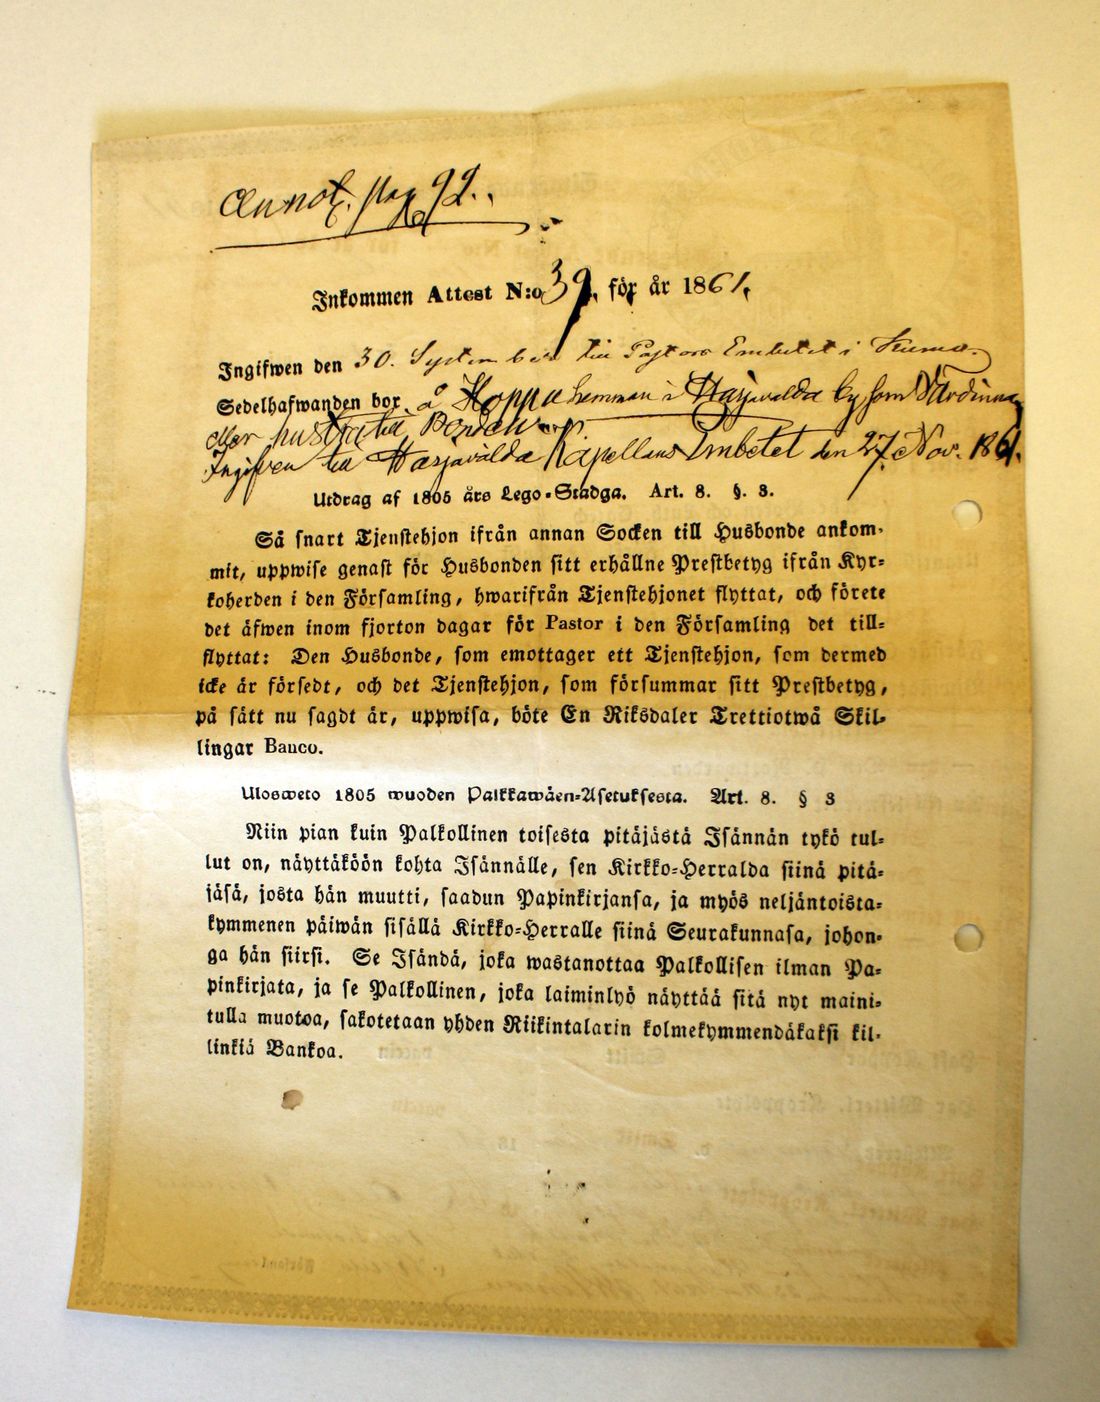 Annot. pag 92.
Inkommen Attest N:o 39. för år 1861.
Ingifwen den 30. September till Pastors Embetet i Kumo.
Sedelhafwanden bor å Hoppu hemman i Harjavalda by som Värdinna
eller hustru till Bonden
Ingifven till Harjavalda Kapellans Embetet den 27. Nov. 1861.
Utdrag af 1805 års Lego-Stadga. Art. 8. §. 3.
Så snart Tjenstehjon ifrån annan Socken till Husbonde ankom-
mit, uppwise genast för Husbonden sitt erhållne Prestbetyg ifrån Kyr-
koherden i den Församling, hwarifrån Tjenstehjonet flyttat, och förete
det äfwen inom fjorton dagar för Pastor i den Församling det till-
flyttat: Den Husbonde, som emottager ett Tjenstehjon, som dermed
icke är försedt, och det Tjenstehjon, som försummar sitt Prestbetyg,
på sätt nu sagdt är, uppwisa, böte En Riksdaler Trettiotwå Skil-
lingar Banco.
Ulosweto 1805 wuoden Palkkawäen-Asetuksesta. Art. 8. § 3
Niin pian kuin Palkollinen toisesta pitäjästä Isännän tykö tul-
lut on, näyttäköön kohta Isännälle, sen Kirkko-Herralda siinä pitä-
jäsä, josta hän muutti, saadun Papinkirjansa, ja myös neljäntoista-
kymmenen päiwän sisällä Kirkko-Herralle siinä Seurakunnasa, johon-
ga hän siirsi. Se Isändä, joka wastanottaa Palkollisen ilman Pa-
pinkirjata, ja se Palkollinen, joka laiminlyö näyttää sitä nyt maini-
tulla muotoa, sakotetaan yhden Riikintalarin kolmekymmendäkaksi kil-
linkiä Bankoa.